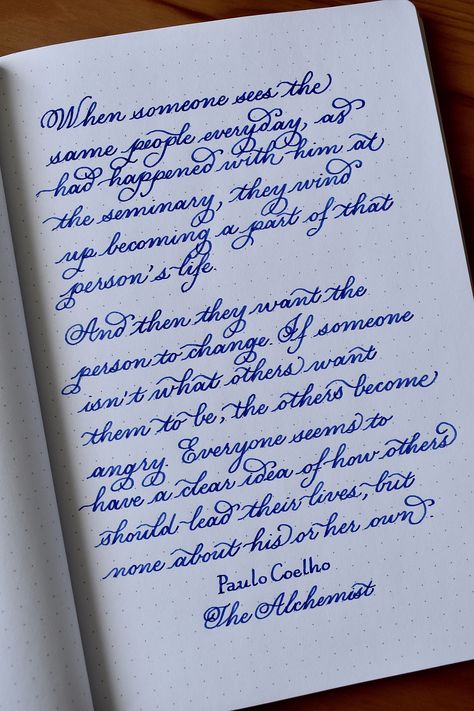 When someone sees the
same people everyday, as
had happened with him at
the seminary, they wind
up becoming a part of that
person's life.
And then they want the
person to change. If someone
isn't what others want
them to be, the others become
angry. Everyone seems to
have a clear idea of how others
should lead their lives, but
none about his or her own.
Paulo Coelho
The Alchemist